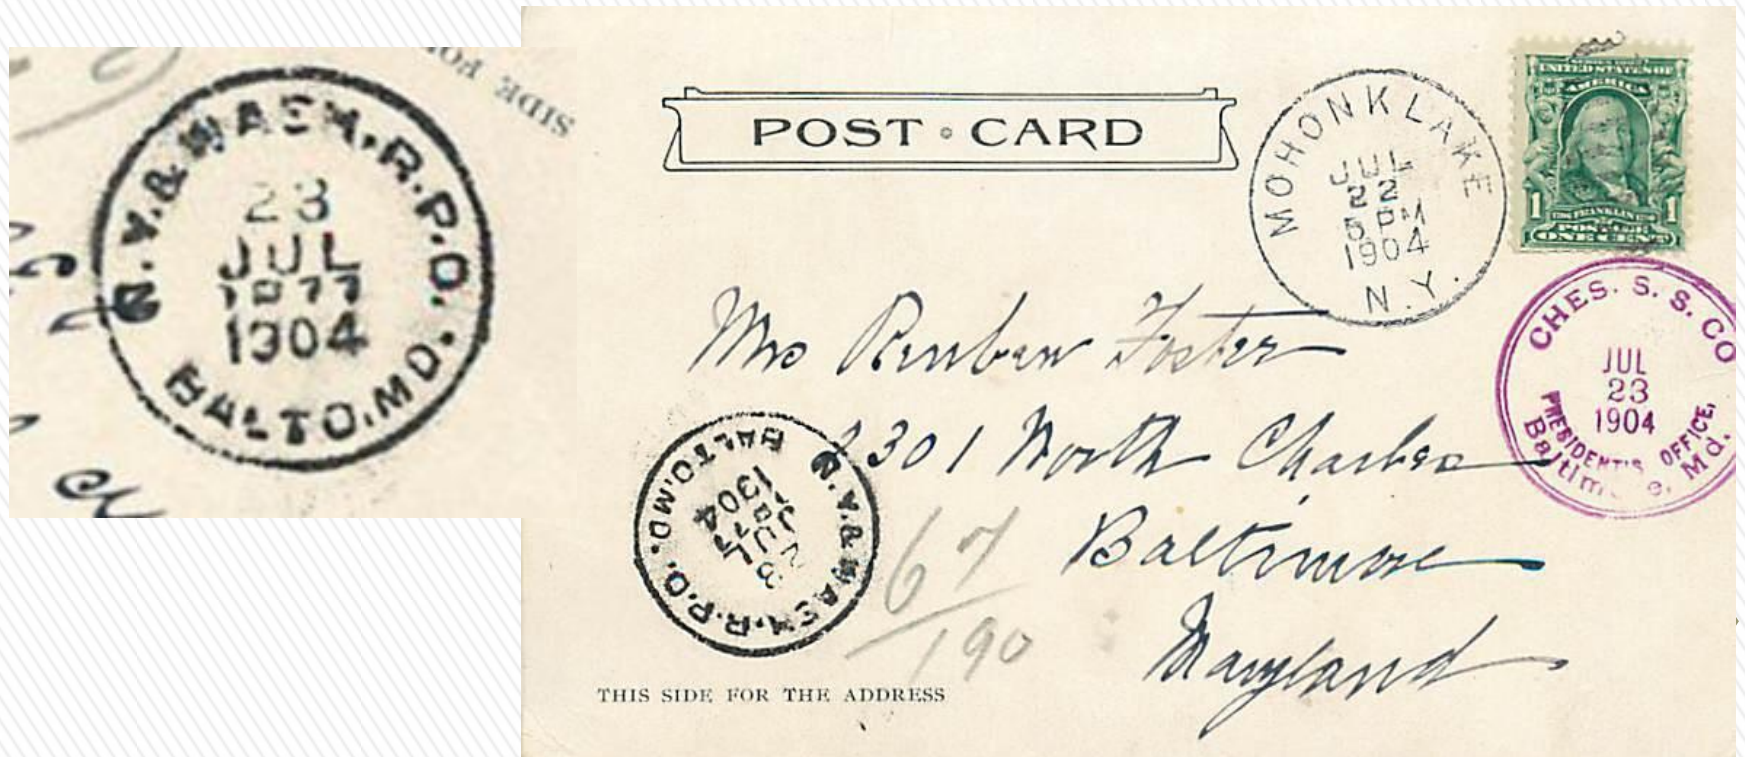 SIDE FOR
N.Y.& WASH.R.P.O.
23
JUL
1904
BALTO.MD.
POST CARD
MOHONK LAKE
JUL
22
5 PM
1904
N.Y.
SERIES 1902
UNITED STATES OF
AMERICA
1 FRANKLIN 1
POSTAGE
ONE CENT
CHES. S. S. CO
JUL
23
1904
PRESIDENT'S OFFICE,
Baltimore, Md.
Mrs Reuben Foster
2301 North Charles
Baltimore
Maryland
N.Y.& WASH.R.P.O.
23
JUL
1904
BALTO.MD.
67
190
THIS SIDE FOR THE ADDRESS